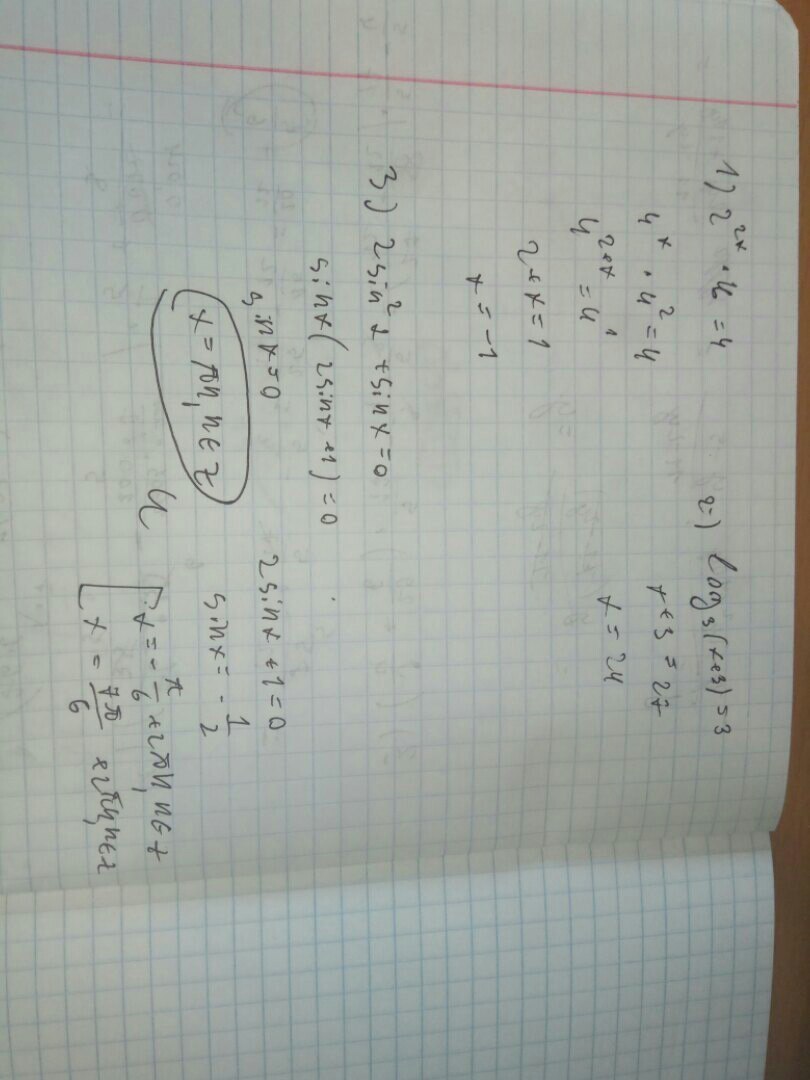 1) 2^{2x} · 16 = 4
4^x · 4^2 = 4
4^{2+x} = 4^1
2 + x = 1
x = -1
2) log_3(x+3) = 3
x + 3 = 27
x = 24
3) 2sin^2 x + sin x = 0
sin x(2sin x + 1) = 0
sin x = 0
x = πn, n ∈ Z
и
2sin x + 1 = 0
sin x = -1/2
[x = -π/6 + 2πn, n ∈ Z
x = 7π/6 + 2πn, n ∈ Z